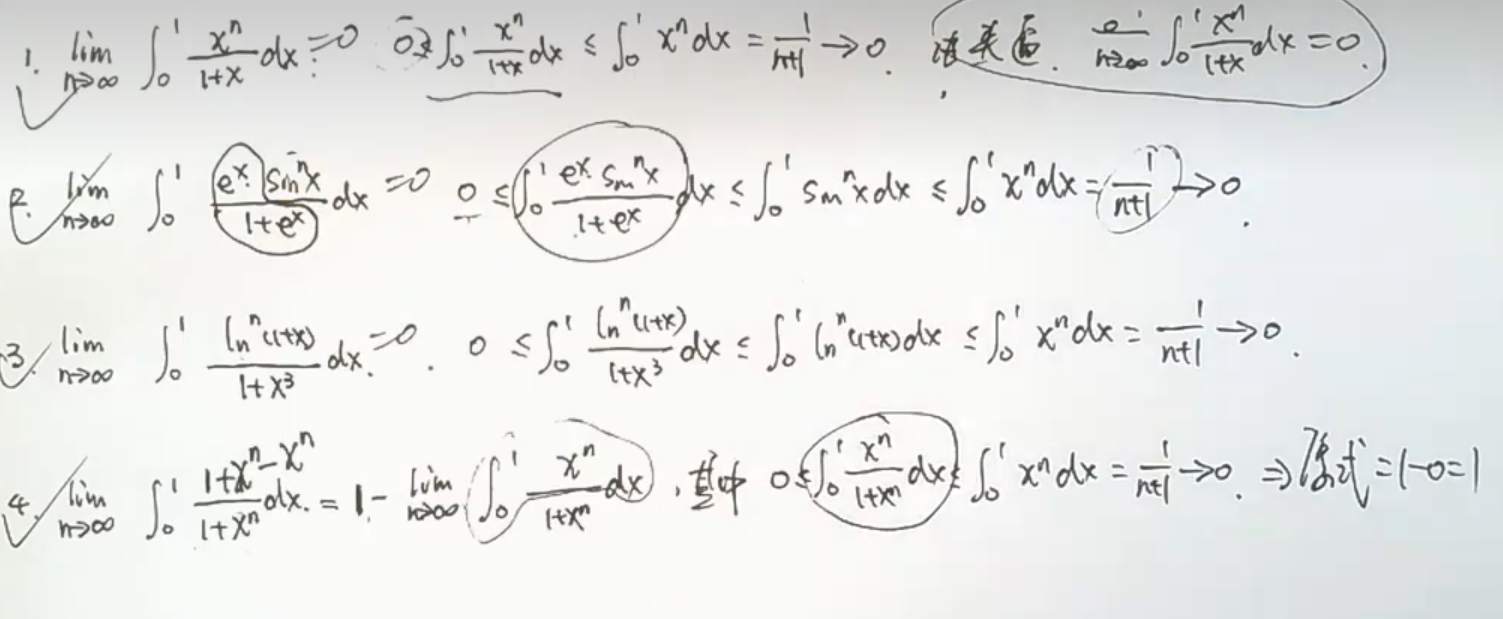 1. lim_{n→∞} ∫_0^1 x^n/(1+x) dx = 0. 0 ≤ ∫_0^1 x^n/(1+x) dx ≤ ∫_0^1 x^n dx = 1/(n+1) → 0. 由夹逼. lim_{n→∞} ∫_0^1 x^n/(1+x) dx = 0.
2. lim_{n→∞} ∫_0^1 (e^x · sin^n x)/(1+e^x) dx = 0 0 ≤ ∫_0^1 (e^x · sin^n x)/(1+e^x) dx ≤ ∫_0^1 sin^n x dx ≤ ∫_0^1 x^n dx = 1/(n+1) → 0.
3. lim_{n→∞} ∫_0^1 ln^n(1+x)/(1+x^3) dx = 0. 0 ≤ ∫_0^1 ln^n(1+x)/(1+x^3) dx ≤ ∫_0^1 ln^n(1+x) dx ≤ ∫_0^1 x^n dx = 1/(n+1) → 0.
4. lim_{n→∞} ∫_0^1 (1+x^n-x^n)/(1+x^n) dx. = 1 - lim_{n→∞} ∫_0^1 x^n/(1+x^n) dx, 其中 0 ≤ ∫_0^1 x^n/(1+x^n) dx ≤ ∫_0^1 x^n dx = 1/(n+1) → 0. ⇒ 原式 = 1-0 = 1